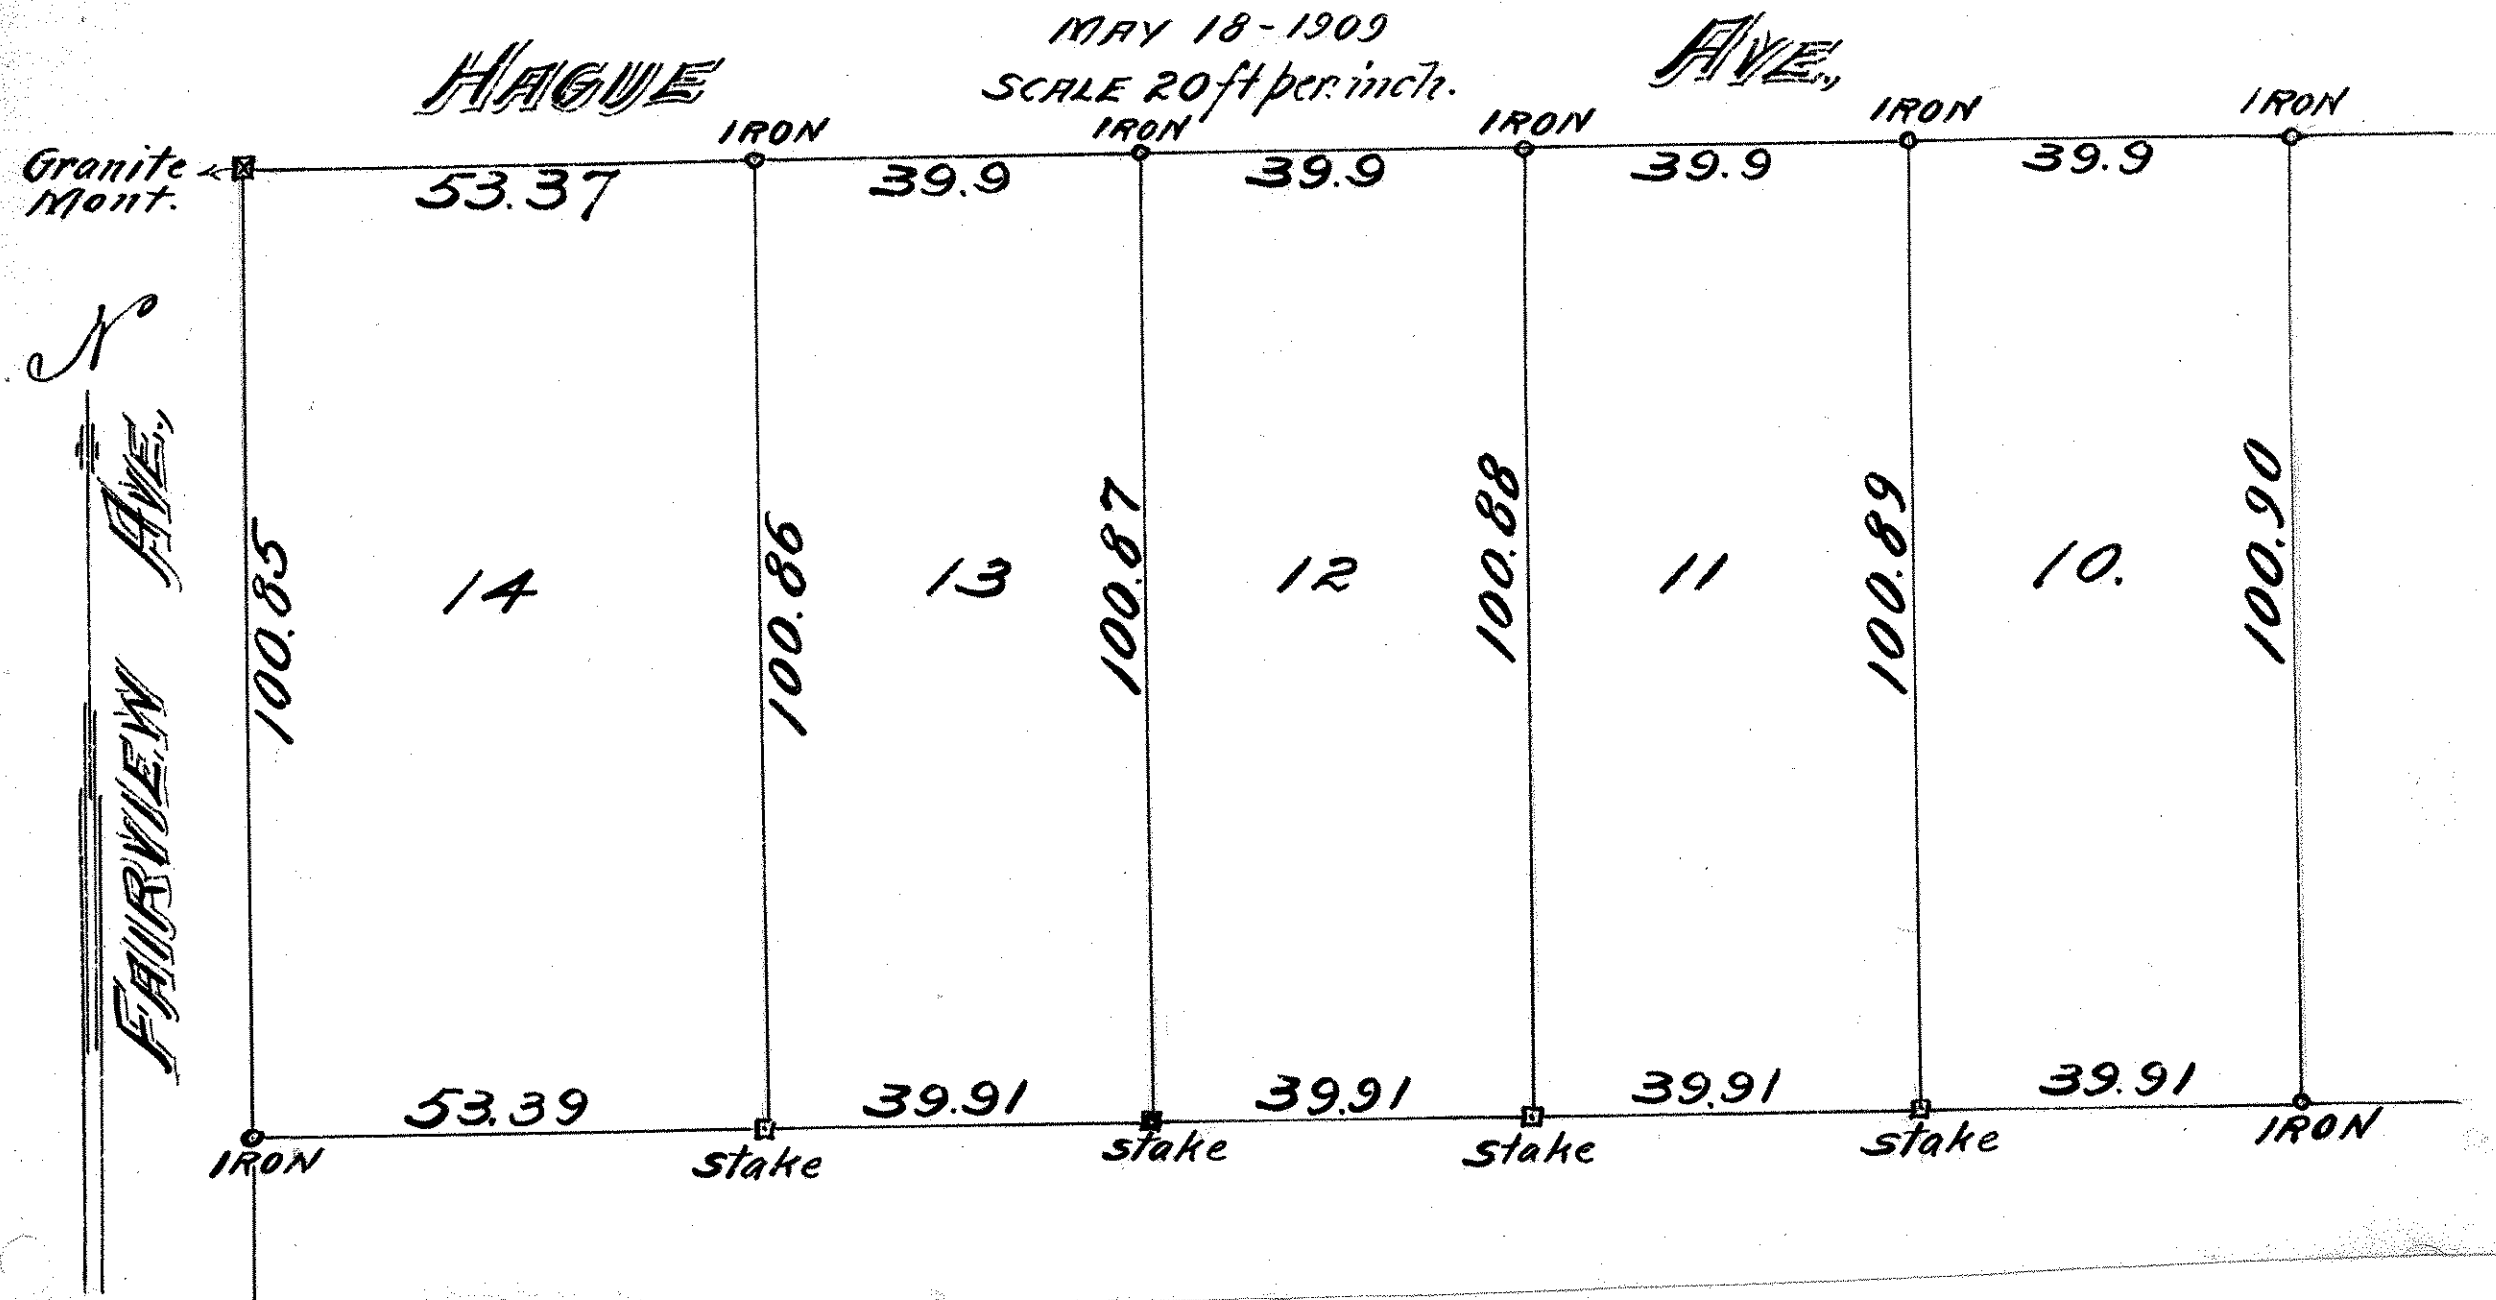 MAY 18-1909
HAGUE AVE.,
SCALE 20 ft per. inch.
IRON IRON IRON IRON IRON
Granite
Mont.
53.37 39.9 39.9 39.9 39.9
N
FAIRVIEW AVE.,
100.85 14 100.86 13 100.87 12 100.88 11 100.89 10. 100.90
53.39 39.91 39.91 39.91 39.91
IRON stake stake stake stake IRON